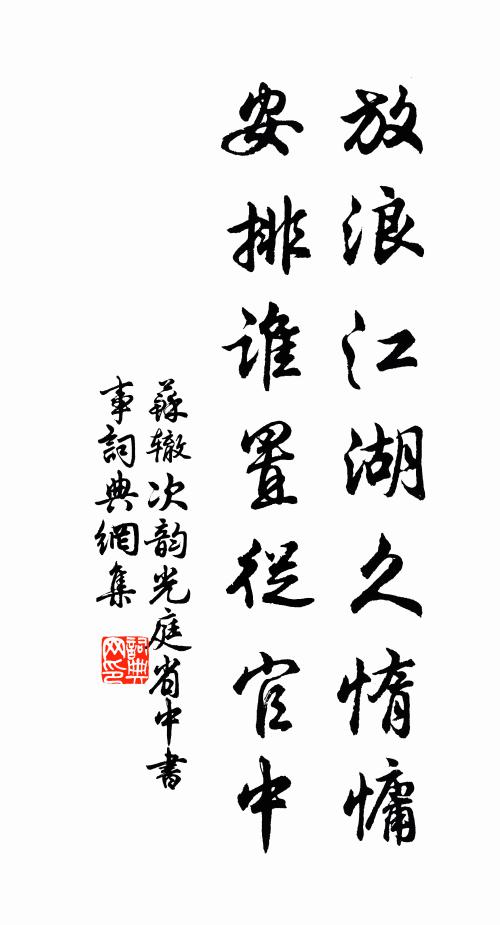 放浪江湖久惰慵
安排誰置從官中
蘇轍次韵光庭省中書
事詞典網集
詞典
网印